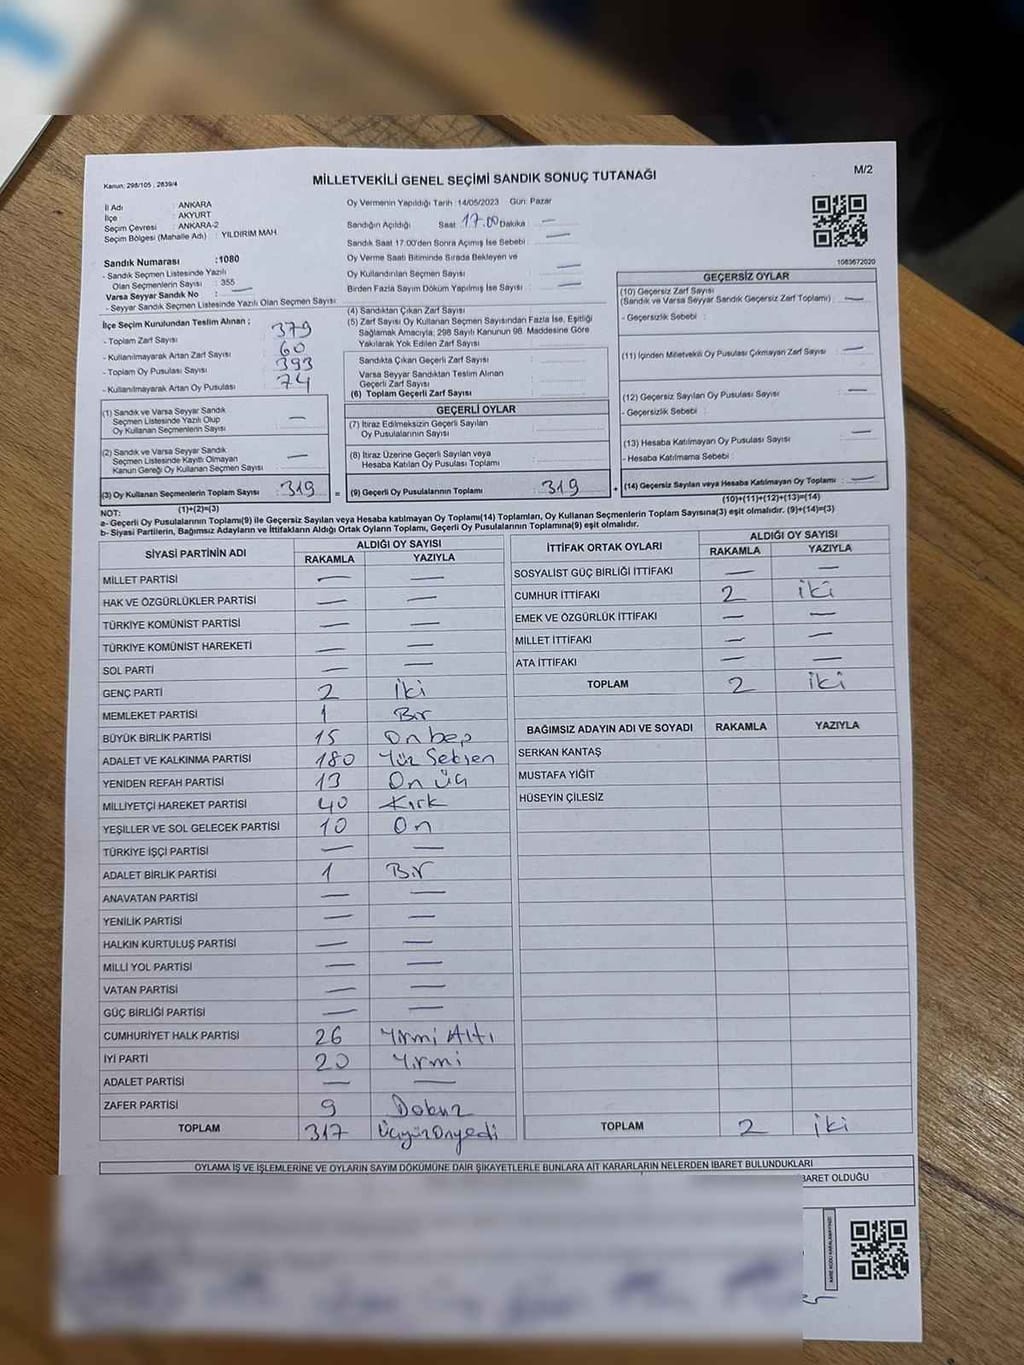 Kanun; 298/105 ; 2839/4
MİLLETVEKİLİ GENEL SEÇİMİ SANDIK SONUÇ TUTANAĞI
M/2
İl Adı : ANKARA
İlçe : AKYURT
Seçim Çevresi : ANKARA-2
Seçim Bölgesi (Mahalle Adı) : YILDIRIM MAH.
Sandık Numarası :1080
- Sandık Seçmen Listesinde Yazılı
Olan Seçmenlerin Sayısı : 355
Varsa Seyyar Sandık No : —
- Seyyar Sandık Seçmen Listesinde Yazılı Olan Seçmen Sayısı
İlçe Seçim Kurulundan Teslim Alınan ;
- Toplam Zarf Sayısı 379
- Kullanılmayarak Artan Zarf Sayısı 60
- Toplam Oy Pusulası Sayısı 393
- Kullanılmayarak Artan Oy Pusulası 74
(1) Sandık ve Varsa Seyyar Sandık
Seçmen Listesinde Yazılı Olup
Oy Kullanan Seçmenlerin Sayısı —
(2) Sandık ve Varsa Seyyar Sandık
Seçmen Listesinde Kayıtlı Olmayan
Kanun Gereği Oy Kullanan Seçmen Sayısı —
(3) Oy Kullanan Seçmenlerin Toplam Sayısı 319 =
(1)+(2)=(3)
Oy Vermenin Yapıldığı Tarih :14/05/2023 Gün: Pazar
Sandığın Açıldığı Saat 17.00 Dakika —
Sandık Saat 17.00'den Sonra Açılmış İse Sebebi —
Oy Verme Saati Bitiminde Sırada Bekleyen ve
Oy Kullandırılan Seçmen Sayısı —
Birden Fazla Sayım Döküm Yapılmış İse Sayısı —
(4) Sandıktan Çıkan Zarf Sayısı
(5) Zarf Sayısı Oy Kullanan Seçmen Sayısından Fazla İse, Eşitliği
Sağlamak Amacıyla; 298 Sayılı Kanunun 98. Maddesine Göre
Yakılarak Yok Edilen Zarf Sayısı
Sandıkta Çıkan Geçerli Zarf Sayısı
Varsa Seyyar Sandıktan Teslim Alınan
Geçerli Zarf Sayısı
(6) Toplam Geçerli Zarf Sayısı
GEÇERLİ OYLAR
(7) İtiraz Edilmeksizin Geçerli Sayılan
Oy Pusulalarının Sayısı
(8) İtiraz Üzerine Geçerli Sayılan veya
Hesaba Katılan Oy Pusulası Toplamı
(9) Geçerli Oy Pusulalarının Toplamı 319 +
1083672020
GEÇERSİZ OYLAR
(10) Geçersiz Zarf Sayısı
(Sandık ve Varsa Seyyar Sandık Geçersiz Zarf Toplamı) —
- Geçersizlik Sebebi :
(11) İçinden Milletvekili Oy Pusulası Çıkmayan Zarf Sayısı —
(12) Geçersiz Sayılan Oy Pusulası Sayısı —
- Geçersizlik Sebebi :
(13) Hesaba Katılmayan Oy Pusulası Sayısı —
- Hesaba Katılmama Sebebi :
(14) Geçersiz Sayılan veya Hesaba Katılmayan Oy Toplamı —
(10)+(11)+(12)+(13)=(14)
NOT:
a- Geçerli Oy Pusulalarının Toplamı(9) ile Geçersiz Sayılan veya Hesaba katılmayan Oy Toplamı(14) Toplamları, Oy Kullanan Seçmenlerin Toplam Sayısına(3) eşit olmalıdır. (9)+(14)=(3)
b- Siyasi Partilerin, Bağımsız Adayların ve İttifakların Aldığı Ortak Oyların Toplamı, Geçerli Oy Pusulalarının Toplamına(9) eşit olmalıdır.
SİYASİ PARTİNİN ADI ALDIĞI OY SAYISI
RAKAMLA YAZIYLA
MİLLET PARTİSİ — —
HAK VE ÖZGÜRLÜKLER PARTİSİ — —
TÜRKİYE KOMÜNİST PARTİSİ — —
TÜRKİYE KOMÜNİST HAREKETİ — —
SOL PARTİ — —
GENÇ PARTİ 2 İki
MEMLEKET PARTİSİ 1 Bir
BÜYÜK BİRLİK PARTİSİ 15 Onbeş
ADALET VE KALKINMA PARTİSİ 180 Yüz Seksen
YENİDEN REFAH PARTİSİ 13 On üç
MİLLİYETÇİ HAREKET PARTİSİ 40 Kırk
YEŞİLLER VE SOL GELECEK PARTİSİ 10 On
TÜRKİYE İŞÇİ PARTİSİ — —
ADALET BİRLİK PARTİSİ 1 Bir
ANAVATAN PARTİSİ — —
YENİLİK PARTİSİ — —
HALKIN KURTULUŞ PARTİSİ — —
MİLLİ YOL PARTİSİ — —
VATAN PARTİSİ — —
GÜÇ BİRLİĞİ PARTİSİ — —
CUMHURİYET HALK PARTİSİ 26 Yirmi Altı
İYİ PARTİ 20 Yirmi
ADALET PARTİSİ — —
ZAFER PARTİSİ 9 Dokuz
TOPLAM 317 Üçyüzonyedi
İTTİFAK ORTAK OYLARI ALDIĞI OY SAYISI
RAKAMLA YAZIYLA
SOSYALİST GÜÇ BİRLİĞİ İTTİFAKI — —
CUMHUR İTTİFAKI 2 iki
EMEK VE ÖZGÜRLÜK İTTİFAKI — —
MİLLET İTTİFAKI — —
ATA İTTİFAKI — —
TOPLAM 2 iki
BAĞIMSIZ ADAYIN ADI VE SOYADI RAKAMLA YAZIYLA
SERKAN KANTAŞ
MUSTAFA YİĞİT
HÜSEYİN ÇİLESİZ
TOPLAM 2 iki
OYLAMA İŞ VE İŞLEMLERİNE VE OYLARIN SAYIM DÖKÜMÜNE DAİR ŞİKAYETLERLE BUNLARA AİT KARARLARIN NELERDEN İBARET BULUNDUKLARI
BARET OLDUĞU